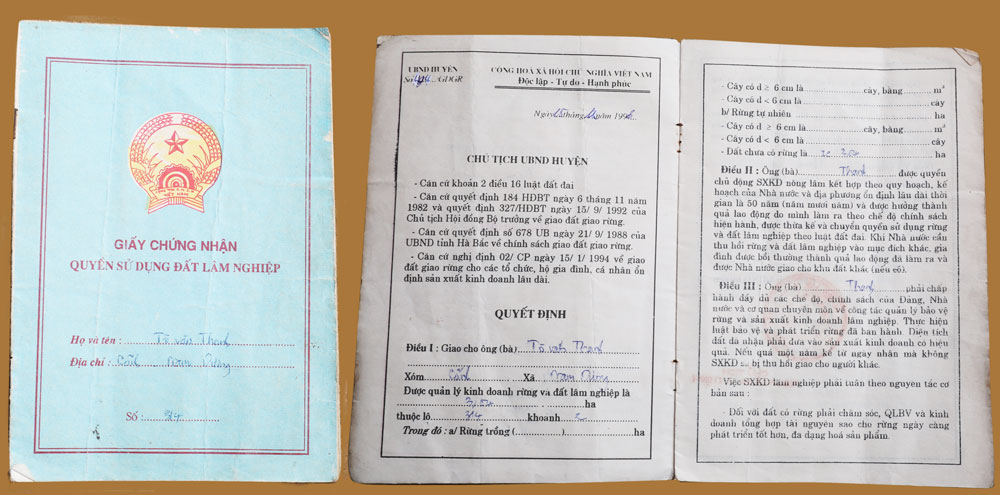 GIẤY CHỨNG NHẬN
QUYỀN SỬ DỤNG ĐẤT LÂM NGHIỆP
Họ và tên : Tô văn Thanh
Địa chỉ :
Số : 314
UBND HUYỆN
Số /GDGR
CỘNG HOÀ XÃ HỘI CHỦ NGHĨA VIỆT NAM
Độc lập - Tự do - Hạnh phúc
Ngày 15 tháng năm 199
CHỦ TỊCH UBND HUYỆN
- Căn cứ khoản 2 điều 16 luật đất đai
- Căn cứ quyết định 184 HĐBT ngày 6 tháng 11 năm
1982 và quyết định 327/HĐBT ngày 15/ 9/ 1992 của
Chủ tịch Hội đồng Bộ trưởng về giao đất giao rừng.
- Căn cứ quyết định số 678 UB ngày 21/ 9/ 1988 của
UBND tỉnh Hà Bắc về chính sách giao đất giao rừng.
- Căn cứ nghị định 02/ CP ngày 15/ 1/ 1994 về giao
đất giao rừng cho các tổ chức, hộ gia đình, cá nhân ổn
định sản xuất kinh doanh lâu dài.
QUYẾT ĐỊNH
Điều I : Giao cho ông (bà) Tô văn Thanh
Xóm Xã
Được quản lý kinh doanh rừng và đất lâm nghiệp là
ha
thuộc lô 314 khoảnh
Trong đó : a/ Rừng trồng ( ) ha
- Cây có d ≥ 6 cm là cây, bằng m³
- Cây có d < 6 cm là cây
b/ Rừng tự nhiên ha
- Cây có d ≥ 6 cm là cây, bằng m³
- Cây có d < 6 cm là cây
- Đất chưa có rừng là ha
Điều II : Ông (bà) Thanh được quyền
chủ động SXKD nông lâm kết hợp theo quy hoạch, kế
hoạch của Nhà nước và địa phương ổn định lâu dài thời
gian là 50 năm (năm mươi năm) và được hưởng thành
quả lao động do mình làm ra theo chế độ chính sách
hiện hành, được thừa kế và chuyển quyền sử dụng rừng
và đất lâm nghiệp theo luật đất đai. Khi Nhà nước cần
thu hồi rừng và đất lâm nghiệp vào mục đích khác, gia
đình được bồi thường thành quả lao động đã làm ra và
được Nhà nước giao cho khu đất khác (nếu có).
Điều III : Ông (bà) Thanh phải chấp
hành đầy đủ các chế độ, chính sách của Đảng, Nhà
nước và cơ quan chuyên môn về công tác quản lý bảo vệ
rừng và sản xuất kinh doanh lâm nghiệp. Thực hiện
luật bảo vệ và phát triển rừng đã ban hành. Diện tích
đất đã nhận phải đưa vào sản xuất kinh doanh có hiệu
quả. Nếu quá một năm kể từ ngày nhận mà không
SXKD bị thu hồi giao cho người khác.
Việc SXKD lâm nghiệp phải tuân theo nguyên tác cơ
bản sau :
- Đối với đất có rừng phải chăm sóc, QLBV và kinh
doanh tổng hợp tài nguyên sao cho rừng ngày càng
phát triển tốt hơn, đa dạng hoá sản phẩm.